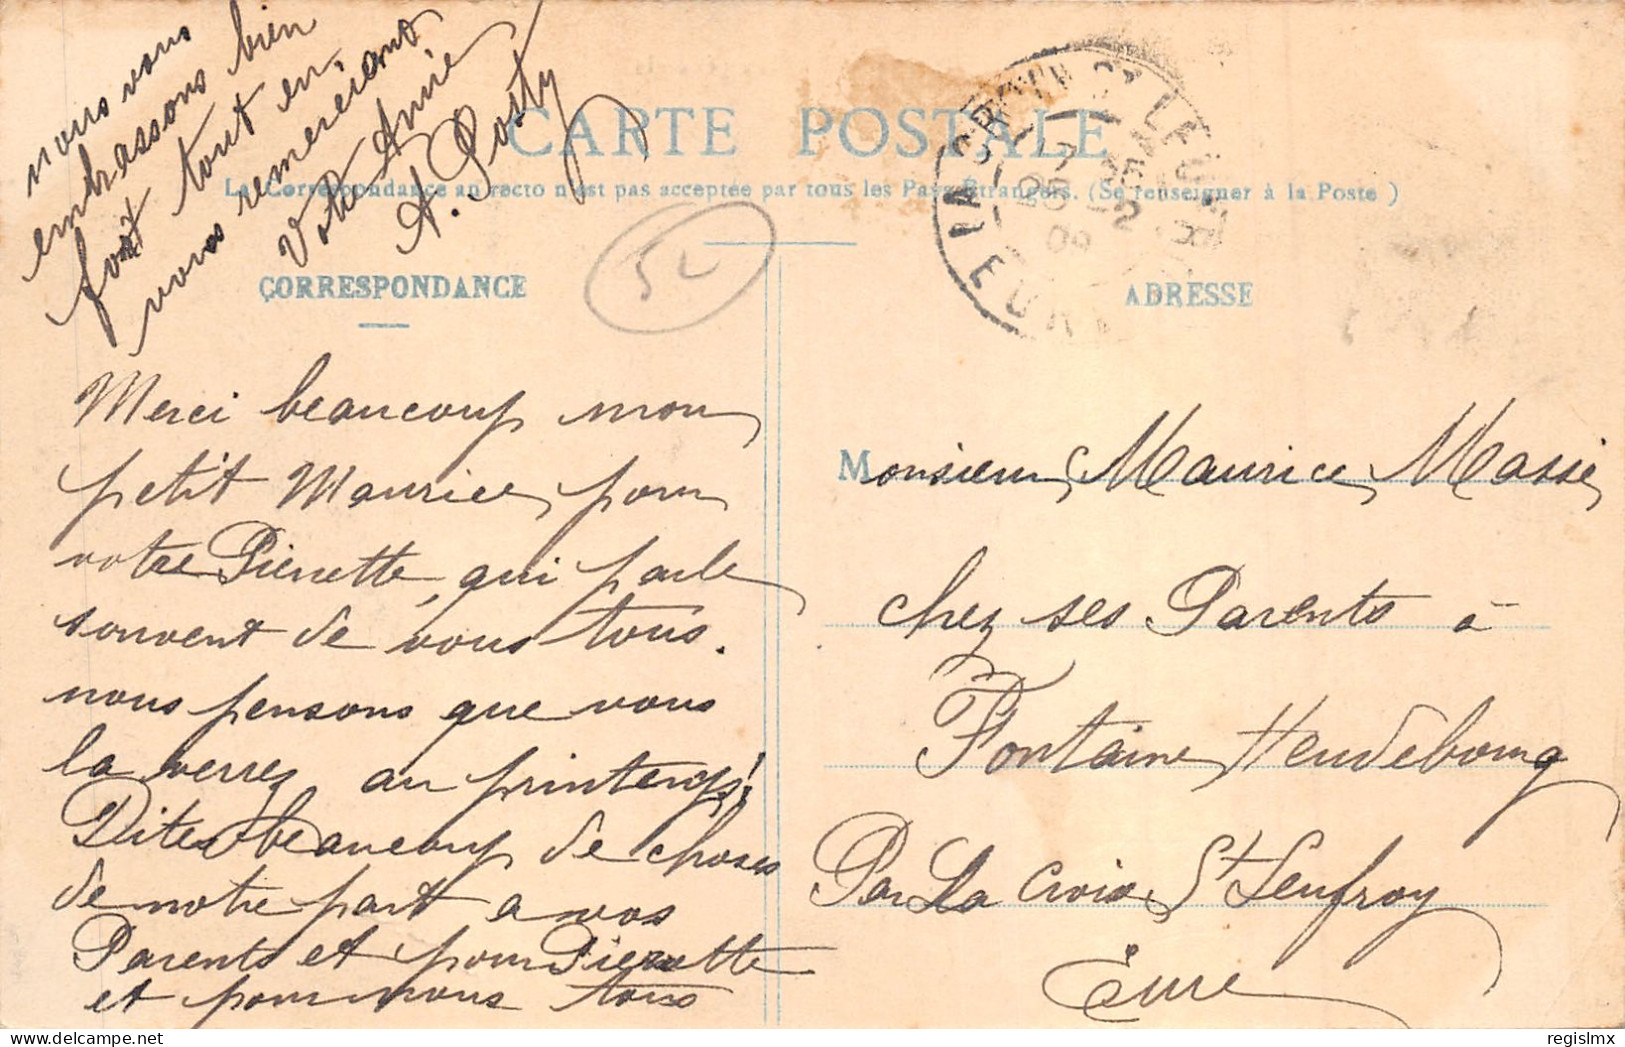 CARTE POSTALE
La Correspondance au recto n'est pas acceptée par tous les Pays Etrangers. (Se renseigner à la Poste)
CORRESPONDANCE
ADRESSE
52
Merci beaucoup mon
petit Maurice, pour
votre Pierrette, qui parle
souvent de vous tous.
nous pensons que vous
la verrez au printemps;
Dites beaucoup de choses
de notre part a vos
Parents et pour Pierrette
et pour nous tous
nous vous
embrassons bien
fort tout en
vous remerciant
Votre Amie
A. Posty
Monsieur Maurice Massé,
chez ses Parents à
Fontaine Heudebourg
Par La Croix St Leufroy
Eure
LA CROIX ST LEUFROY
EURE
regislmx